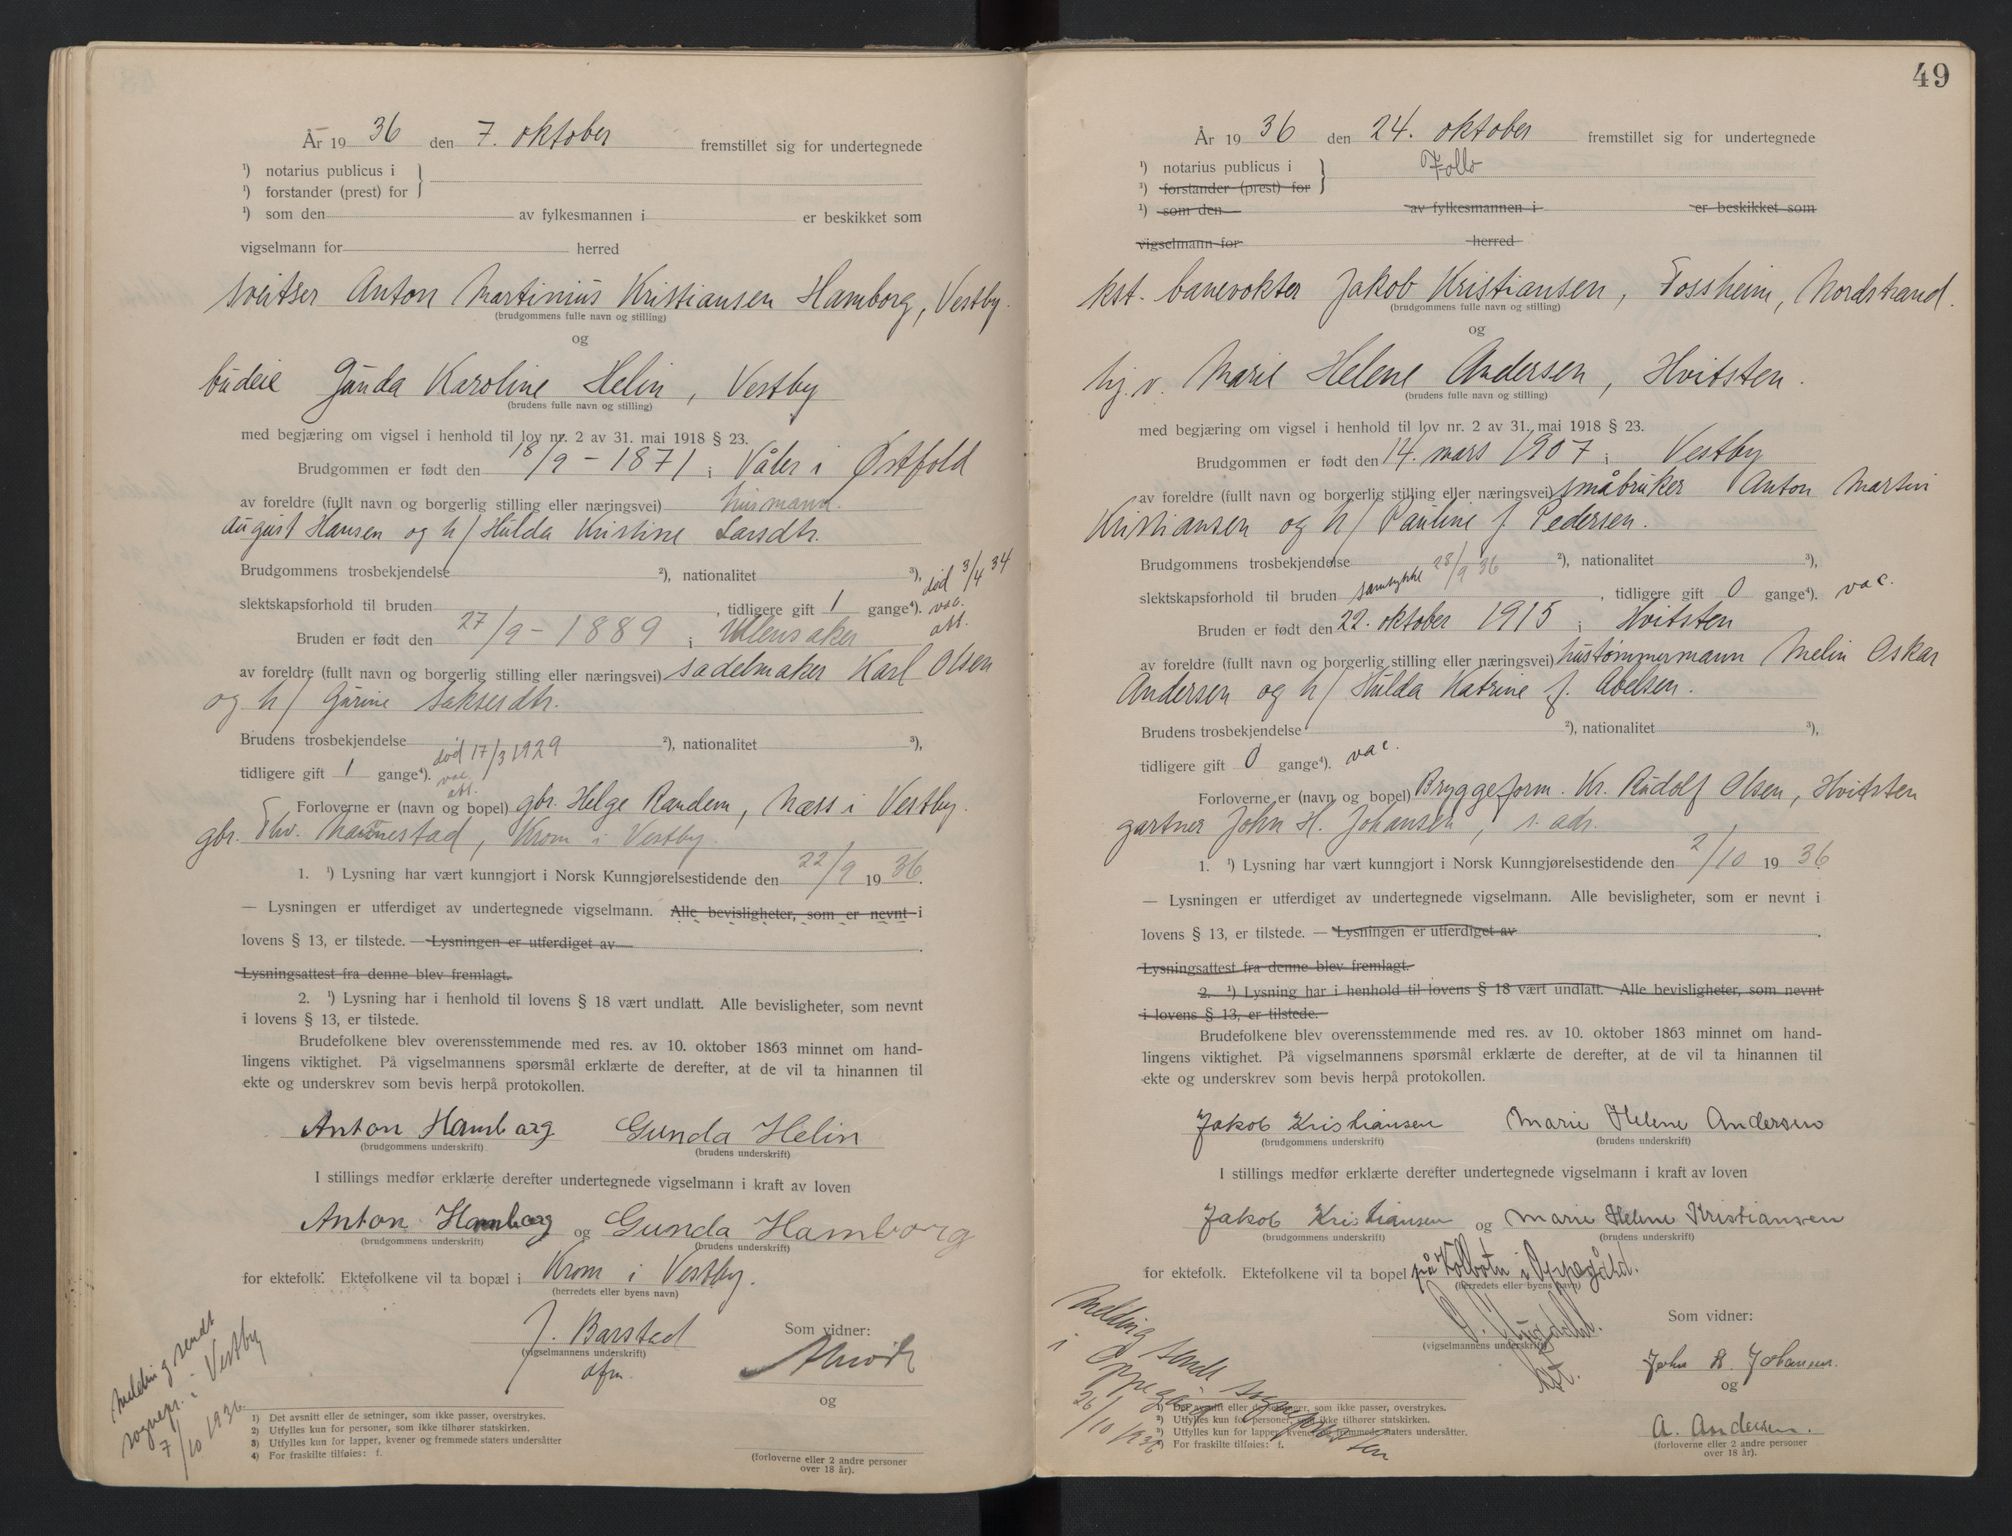 År 19 36 den 7. oktober fremstillet sig for undertegnede
¹) notarius publicus i
¹) forstander (prest) for
¹) som den av fylkesmannen i er beskikket som
vigselmann for herred
sveitser Anton Martinius Kristiansen Hamborg, Vestby.
(brudgommens fulle navn og stilling)
og
budeie Gunda Karoline Helin, Vestby
(brudens fulle navn og stilling)
med begjæring om vigsel i henhold til lov nr. 2 av 31. mai 1918 § 23.
Brudgommen er født den 18/9 - 1871 i Våler i Østfold
av foreldre (fullt navn og borgerlig stilling eller næringsvei) husmand
August Hansen og h/ Hulda Kristine Larsdtr.
Brudgommens trosbekjendelse ²), nationalitet ³),
død 3/4 34
slektskapsforhold til bruden , tidligere gift 1 gange⁴). vac.
att.
Bruden er født den 27/9 - 1889 i Ullensaker
av foreldre (fullt navn og borgerlig stilling eller næringsvei) sadelmaker Karl Olsen
og h/ Gurine Saksesdtr.
Brudens trosbekjendelse ²), nationalitet ³),
tidligere gift 1 gange⁴). død 17/3 1929
vac.
att.
Forloverne er (navn og bopel) gbr. Helge Randem, Næss i Vestby.
gbr. Thv. Nannestad, Krom i Vestby.
1. ¹) Lysning har vært kunngjort i Norsk Kunngjørelsestidende den 22/9 19 36.
— Lysningen er utferdiget av undertegnede vigselmann. Alle bevisligheter, som er nevnt i
lovens § 13, er tilstede. — Lysningen er utferdiget av
Lysningsattest fra denne blev fremlagt.
2. ¹) Lysning har i henhold til lovens § 18 vært undlatt. Alle bevisligheter, som nevnt
i lovens § 13, er tilstede.
Brudefolkene blev overensstemmende med res. av 10. oktober 1863 minnet om hand-
lingens viktighet. På vigselmannens spørsmål erklærte de derefter, at de vil ta hinannen til
ekte og underskrev som bevis herpå protokollen.
Anton Hamborg Gunda Helin
(brudgommens underskrift) (brudens underskrift)
I stillings medfør erklærte derefter undertegnede vigselmann i kraft av loven
Anton Hamborg og Gunda Hamborg
(brudgommens underskrift) (brudens underskrift)
for ektefolk. Ektefolkene vil ta bopæl i Krom i Vestby.
(herredets eller byens navn)
J. Barstad
(vigselmannens underskrift)
afm.
Som vidner:
og
(forloverne eller 2 andre personer
over 18 år).
Melding sendt
sognepr. i Vestby
7/10 1936.
1) Det avsnitt eller de setninger, som ikke passer, overstrykes.
2) Utfylles kun for personer, som ikke tilhører statskirken.
3) Utfylles kun for lapper, kvener og fremmede staters undersåtter
4) For fraskilte tilføies: f.
49
År 19 36 den 24. oktober fremstillet sig for undertegnede
¹) notarius publicus i Follo
¹) forstander (prest) for
¹) som den av fylkesmannen i er beskikket som
vigselmann for herred
kst. banevokter Jakob Kristiansen, Fossheim, Nordstrand.
(brudgommens fulle navn og stilling)
og
hj. v. Marie Helene Andersen, Hvitsten.
(brudens fulle navn og stilling)
med begjæring om vigsel i henhold til lov nr. 2 av 31. mai 1918 § 23.
Brudgommen er født den 14. mars 1907 i Vestby
av foreldre (fullt navn og borgerlig stilling eller næringsvei) småbruker Anton Martin
Kristiansen og h/ Pauline f. Pedersen.
Brudgommens trosbekjendelse ²), nationalitet ³),
samtykke 28/9 36
slektskapsforhold til bruden , tidligere gift 0 gange⁴). vac.
Bruden er født den 22. oktober 1915 i Hvitsten
av foreldre (fullt navn og borgerlig stilling eller næringsvei) hustømmermann Melin Oskar
Andersen og h/ Hulda Katrine f. Abelsen.
Brudens trosbekjendelse ²), nationalitet ³),
tidligere gift 0 gange⁴). vac.
Forloverne er (navn og bopel) Bryggeform. Kr. Rudolf Olsen, Hvitsten
gartner John H. Johansen, s. adr.
1. ¹) Lysning har vært kunngjort i Norsk Kunngjørelsestidende den 2/10 19 36.
— Lysningen er utferdiget av undertegnede vigselmann. Alle bevisligheter, som er nevnt i
lovens § 13, er tilstede. — Lysningen er utferdiget av
Lysningsattest fra denne blev fremlagt.
2. ¹) Lysning har i henhold til lovens § 18 vært undlatt. Alle bevisligheter, som nevnt
i lovens § 13, er tilstede.
Brudefolkene blev overensstemmende med res. av 10. oktober 1863 minnet om hand-
lingens viktighet. På vigselmannens spørsmål erklærte de derefter, at de vil ta hinannen til
ekte og underskrev som bevis herpå protokollen.
Jakob Kristiansen Marie Helene Andersen
(brudgommens underskrift) (brudens underskrift)
I stillings medfør erklærte derefter undertegnede vigselmann i kraft av loven
Jakob Kristiansen og Marie Helene Kristiansen
(brudgommens underskrift) (brudens underskrift)
for ektefolk. Ektefolkene vil ta bopel på Kolbotn i Oppegård.
(herredets eller byens navn)
(vigselmannens underskrift)
kst.
Som vidner:
John H. Johansen.
og
A. Andersen.
(forloverne eller 2 andre personer
over 18 år).
Melding sendt sognepresten
i Oppegård
26/10 1936
¹) Det avsnitt eller de setninger, som ikke passer, overstrykes.
²) Utfylles kun for personer, som ikke tilhører statskirken.
³) Utfylles kun for lapper, kvener og fremmede staters undersåtter.
⁴) For fraskilte tilføies: f.